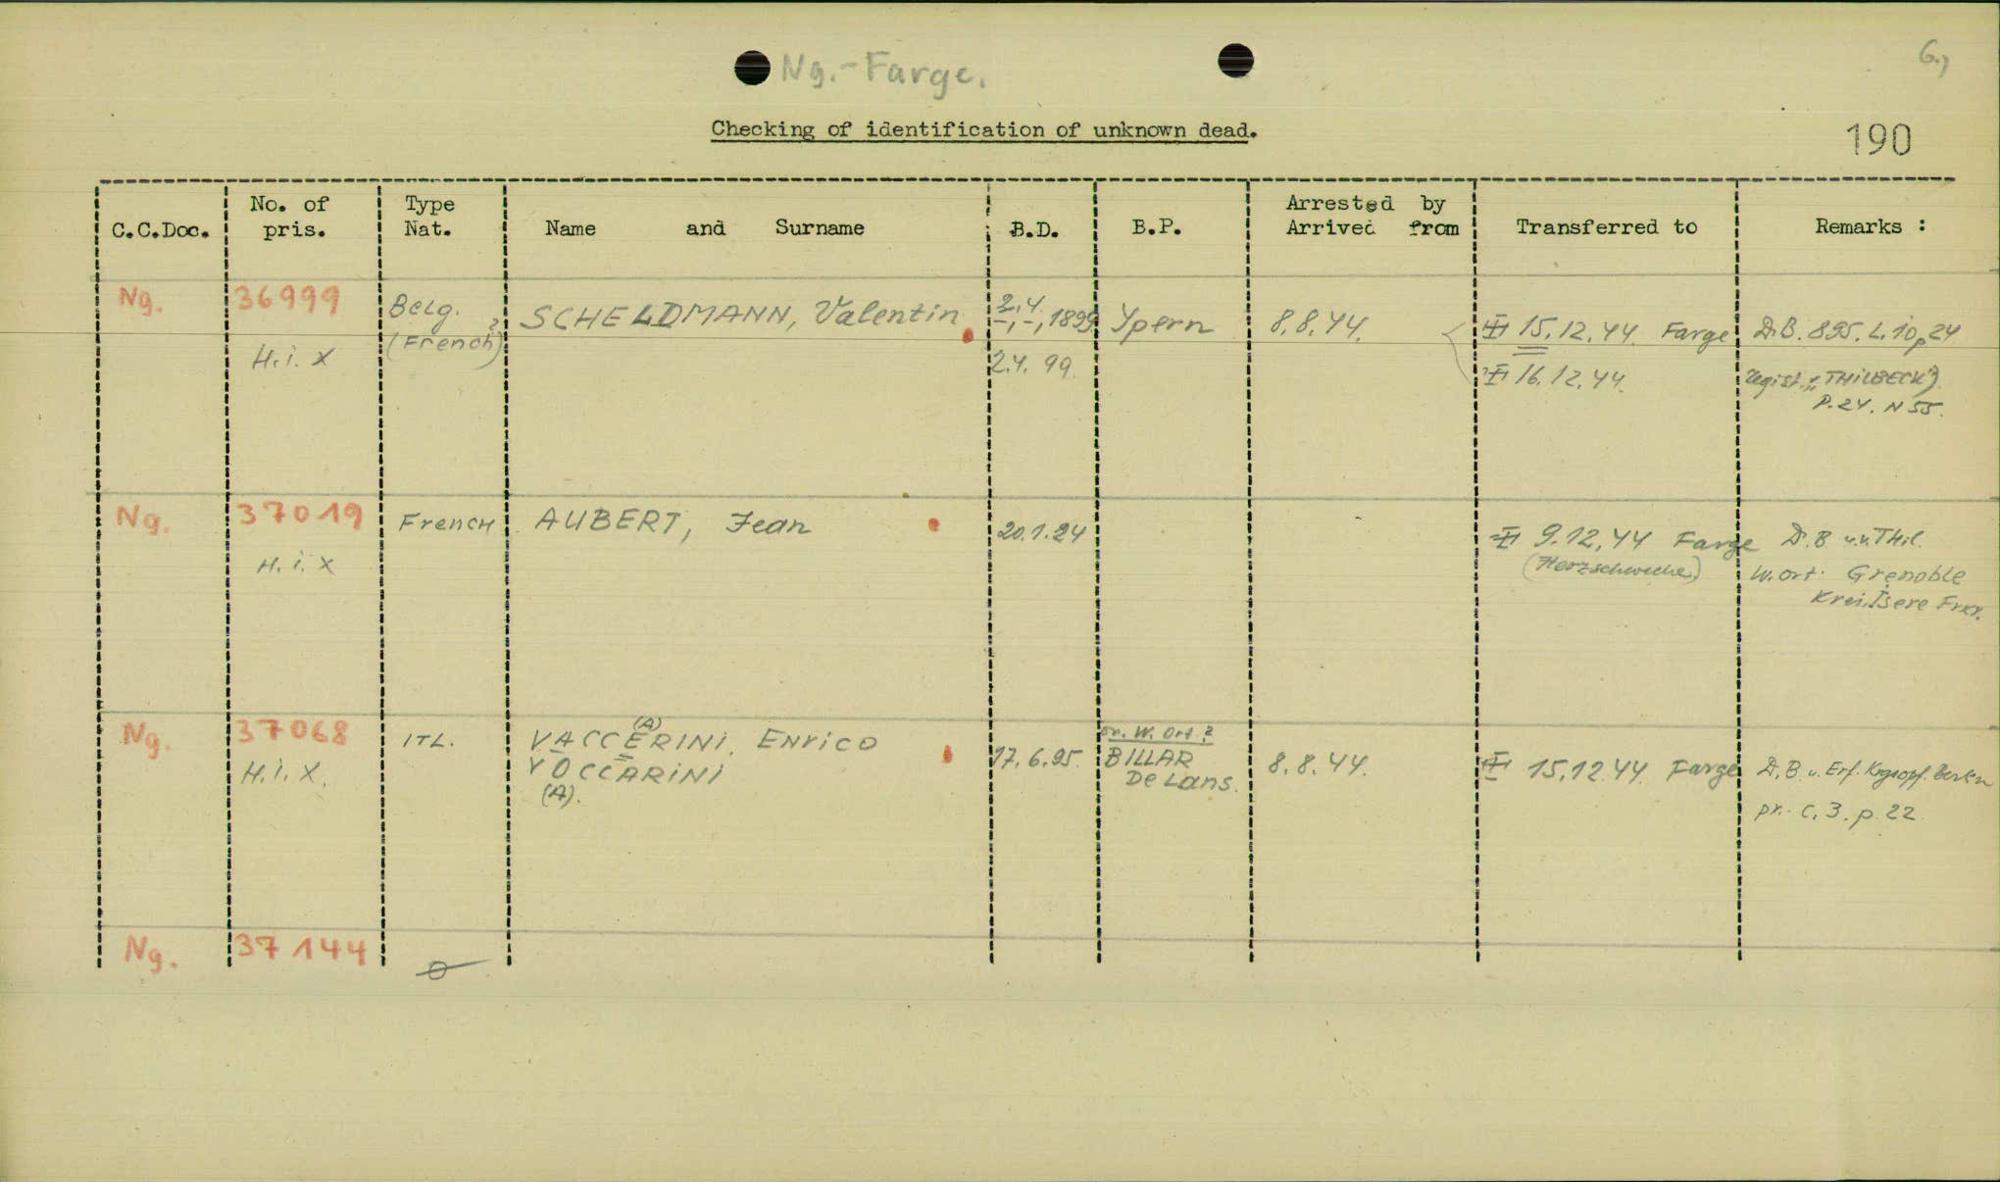 Ng.-Farge.
6.)
Checking of identification of unknown dead.
190
C.C.Doc.
No. of pris.
Type Nat.
Name and Surname
B.D.
B.P.
Arrested by
Arrived from
Transferred to
Remarks :
Ng.
36999
H.i.X
Belg. ?
(French)
SCHELDMANN, Valentin
2.4.
-,-,1899
2.4.99.
Ypern
8.8.44.
15.12.44. Farge
16.12.44.
D.B. 895. L.10 p24
regist. „THILBECK")
P.24. N 55.
Ng.
37019
H.i.X
French
AUBERT, Jean
20.1.24
9.12.44 Farge
(Herzschweche)
D.B u.v. Thil.
W.ort. Grenoble
Krei. Isere Frkr.
Ng.
37068
H.i.X.
ITL.
(A)
VACCERINI, Enrico
VOCCARINI
(A).
17.6.95.
W. Ort ?
BILLAR
De Lans.
8.8.44.
15.12.44 Farge
D.B. u. Erf. Berlin
pr. C.3. p.22
Ng.
37144